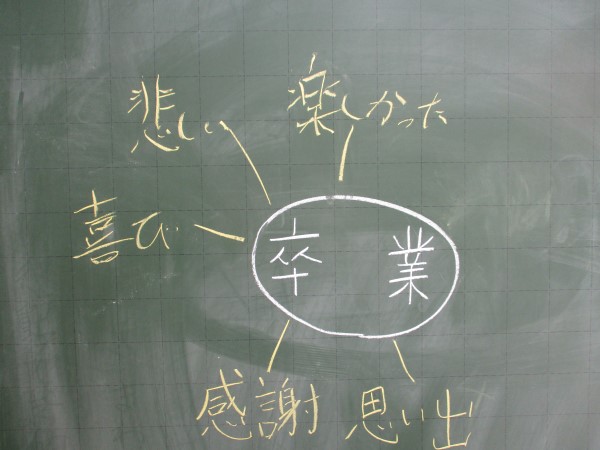 悲しい
楽しかった
喜び
卒業
感謝
思い出